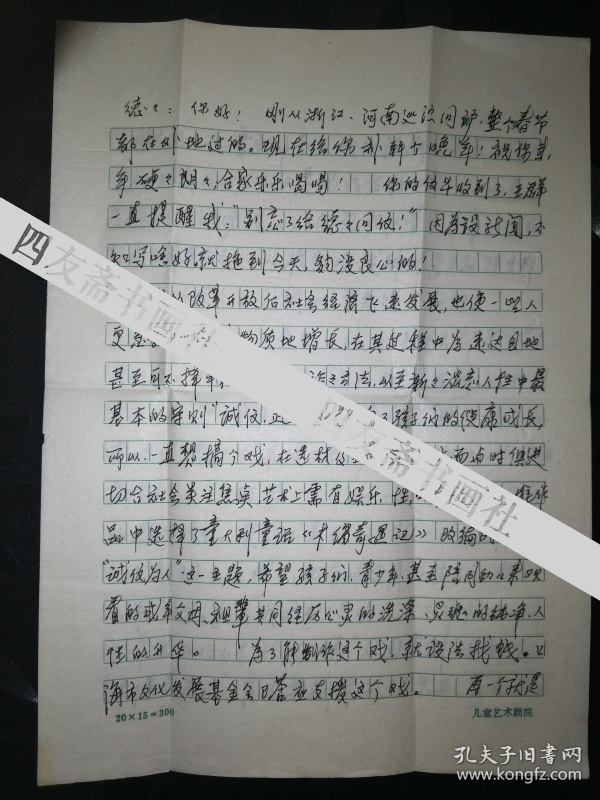 德々：你好！ 刚从浙江、河南巡演回沪，整个春节
都在外地过的。现在给你补拜个晚年！祝你
合家乐乐 你的信早收到了，
一直提醒我："别忘了给德々回信！"因为没新闻，不
知写啥好就拖到今天，够没良心的！
改革开放后社会经济飞速发展，也使一些人
更 物质地增长，在其过程中为速达目地
甚至可不择手 以至渐々淡忘人性中最
基本的守则"诚信， 孩子们的健康成长，
所以，一直想搞个戏，在选材 与时俱进
切合社会关注焦点 艺术上需有娱乐性
品中选择了意大利童话《木偶奇遇记》改编
"诚信为人"这一主题，希望孩子们、青少年、甚至陪同
看的成年父母、祖辈共同经历心灵的洗涤、灵魂的纯净、人
性的升华。 为了能制作这个戏，就设法找钱。上
海市文化发展基金会已答应支援这个戏。 再一个就是
20×15=300 儿童艺术剧院
四友斋书画社
四友斋书画社
孔夫子旧书网
www.kongfz.com